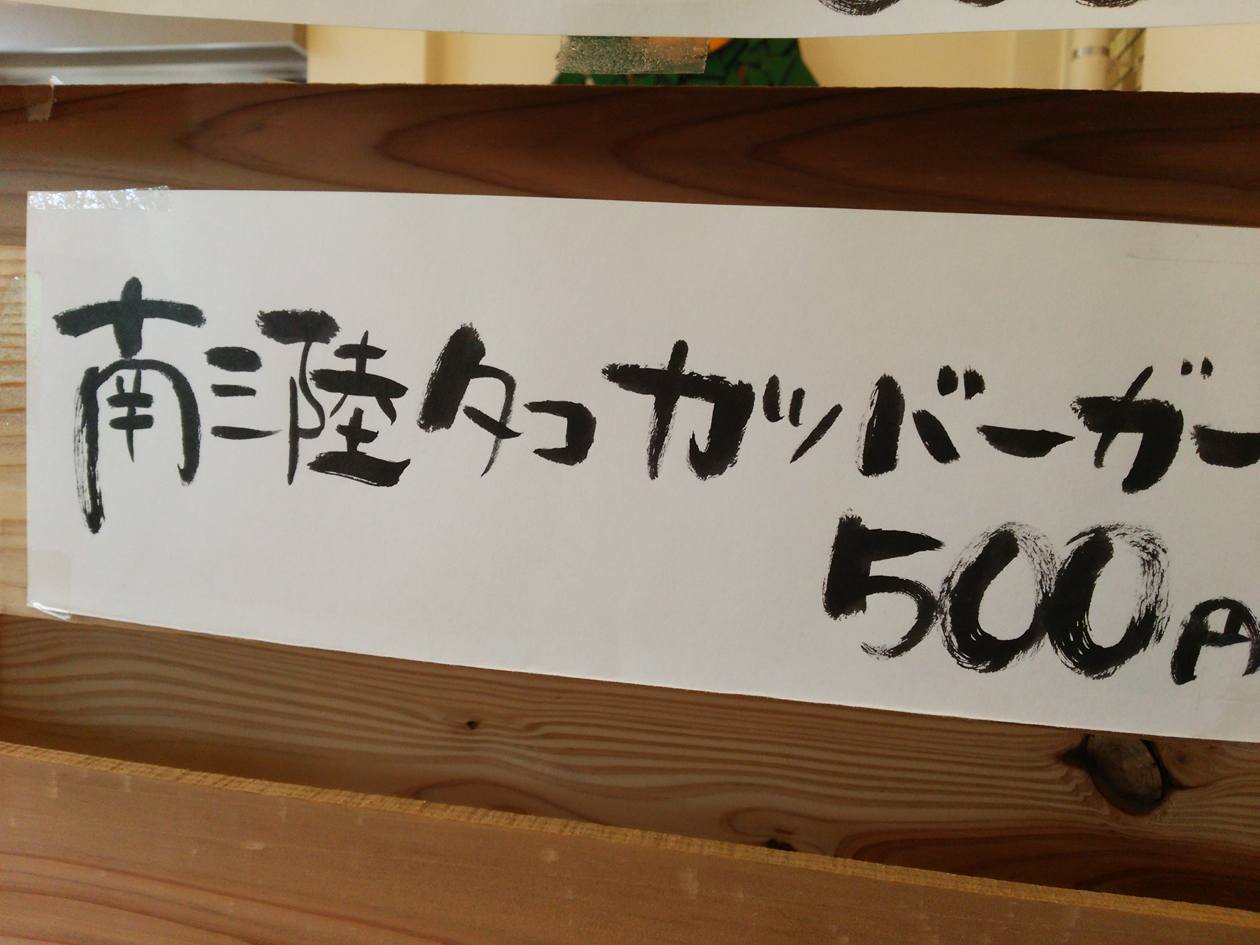 南三陸タコカツバーガー
500円